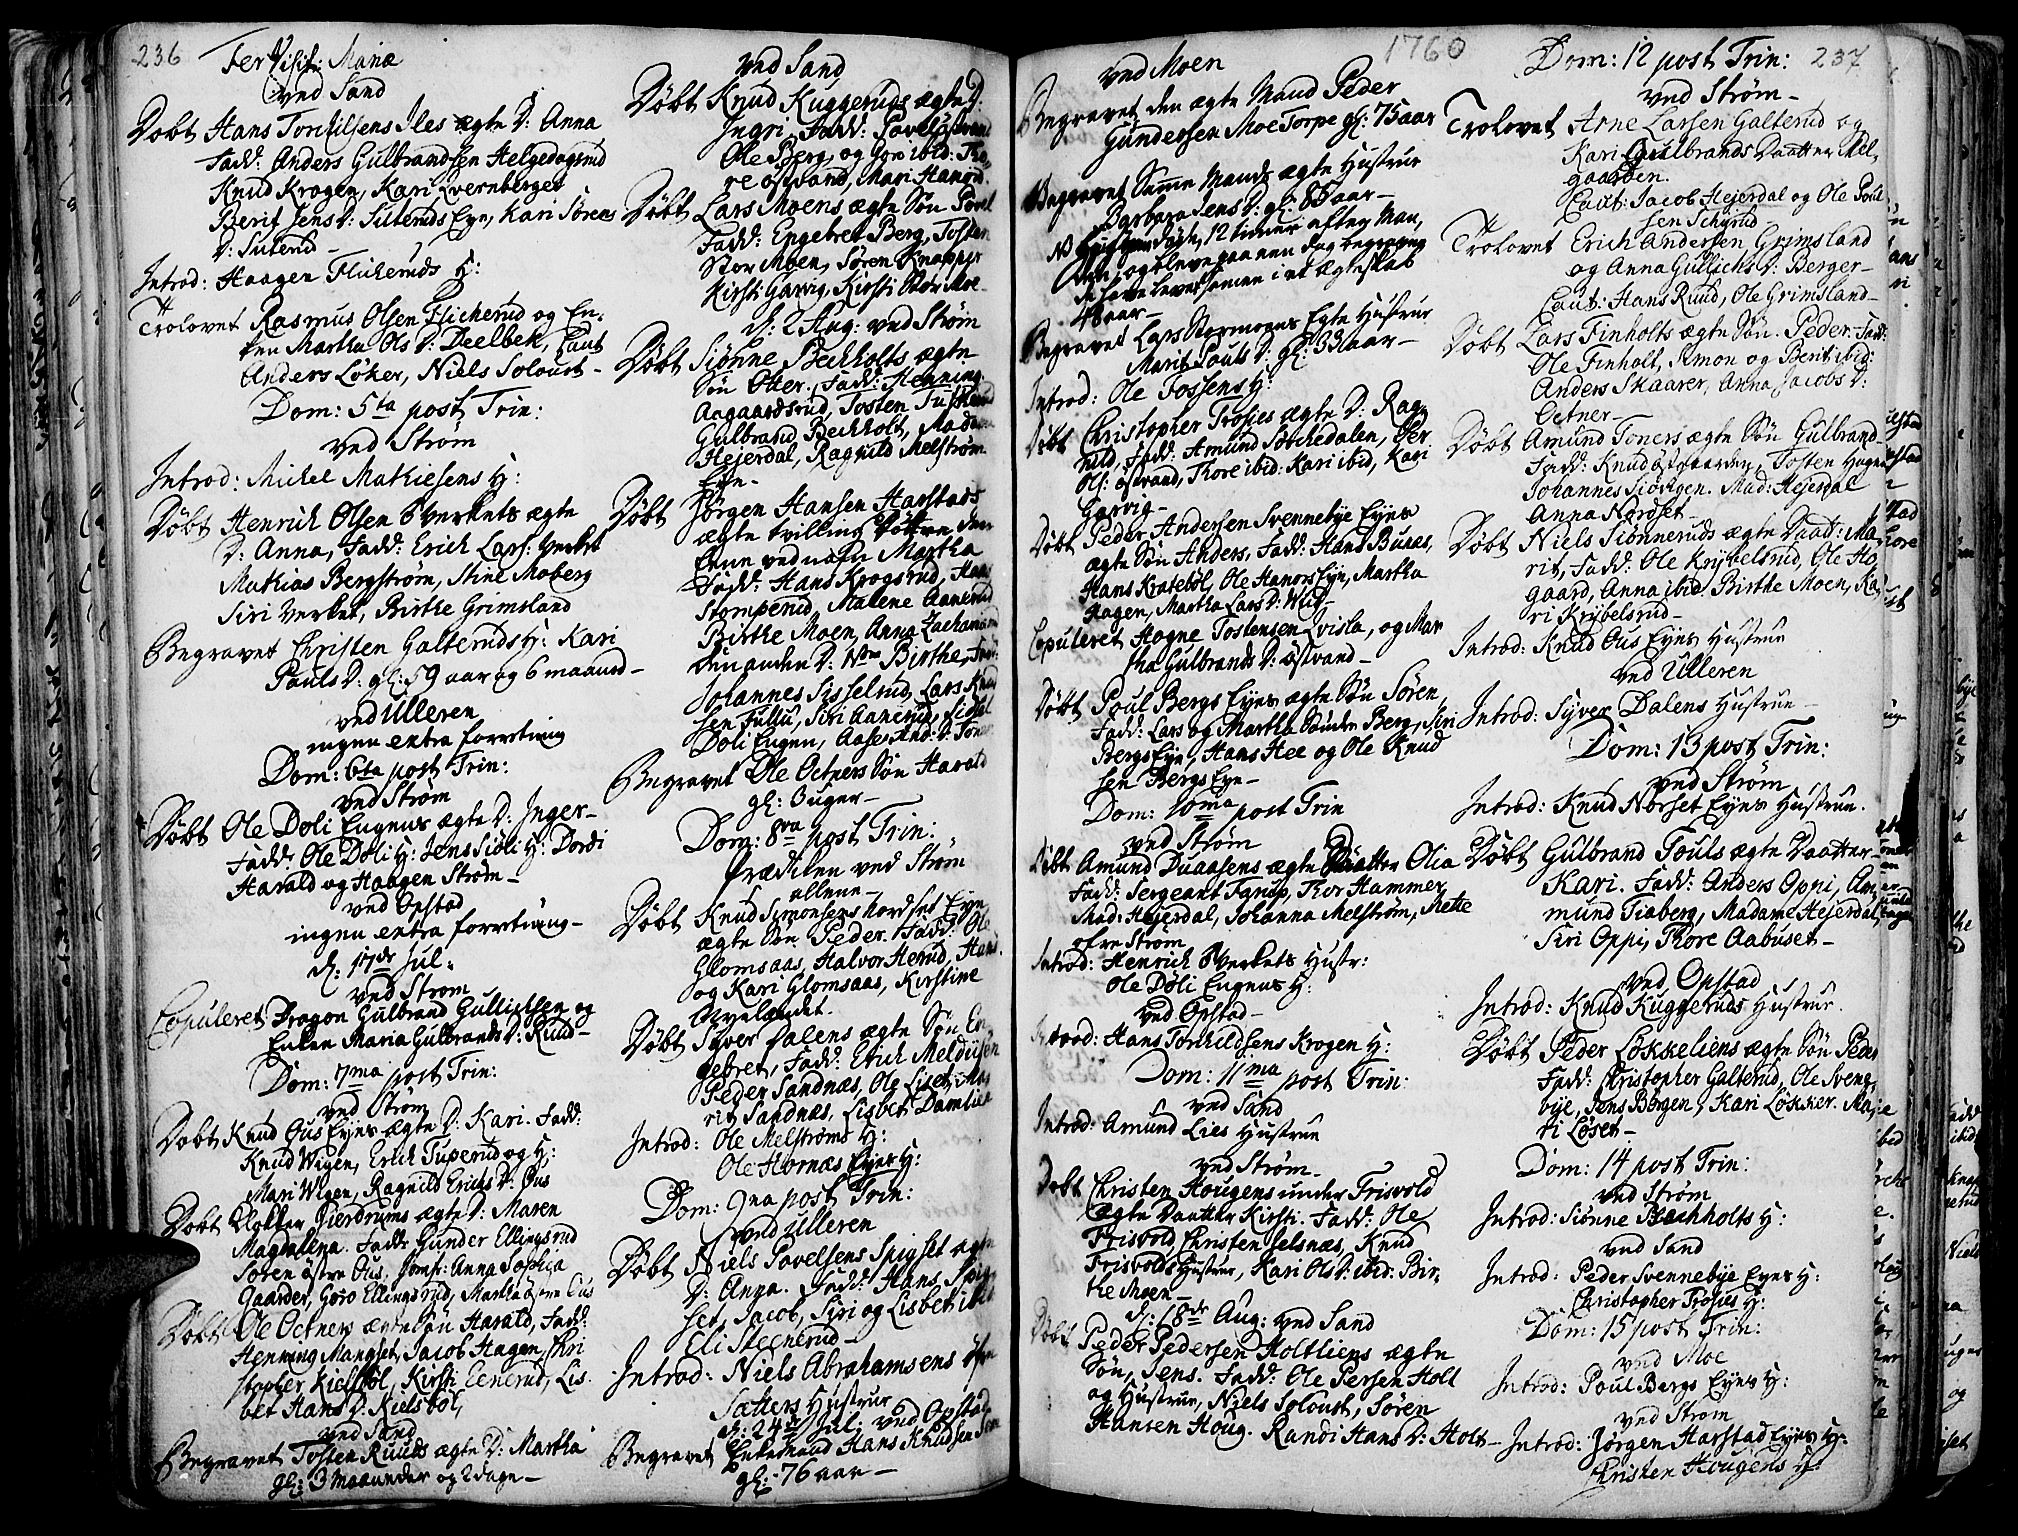 236
Fer Visit: Mariæ
ved Sand
Døbt Hans Torchilsens Iles ægte D: Anna
Fadd: Anders Gulbrandsen Helgedagsrud
Knud Krogen, Kari Qvernberget
Berit Jens D: Suterud Eye, Kari Sørens
D: Suterud
Introd: Haagen Flicheruds H:
Trolovet Rasmus Olsen Flicherud og En-
ken Martha Ols D: Deelbek, Caut
Anders Løker, Niels Soloust
Dom: 5ta post Trin:
ved Strøm
Introd: Michel Mathiesens H:
Døbt Henrich Olsen Verkets ægte
D: Anna, Fadd: Erich Lars: Verket
Mathias Bergstrøm, Stine Moberg
Siri Verket, Birthe Grimsland
Begravet Christen Galteruds H: Kari
Pauls D: gl: 59 aar og 6 maaned
ved Ulleren
ingen extra forretning
Dom: 6ta post Trin:
ved Strøm
Døbt Ole Doli Eugens ægte D: Inger
Fadd: Ole Doli H: Jens Sioli H: Dordi
Harald og Haagen Strøm
ved Opstad
ingen extra forretning
d: 17de Jul:
ved Strøm
Copuleret Dragon Gulbrand Gullichsen og
Enken Maria Gulbrands D: Ruud
Dom: 7ma post Trin:
ved Strøm
Døbt Knud Ous Eyes ægte D: Kari. Fadd:
Knud Wigen, Erich Tuperud og H:
Mari Wigen, Ragnild Erichs D: Ous
Døbt Klokker Gierdrums ægte D: Maren
Magdalena. Fadd: Gunder Ellingsrud
Søren østre Ous, Jomfr: Anna Sophia
Gaarder, Goro Ellingsrud, Martha østre Ous
Døbt Ole Octners ægte Søn Harald, Fadd:
Henning Mangset, Jacob Hagen, Chri
stopher Kielsbøl, Kirsti Eenerud, Lis-
bet Hans D: Kielsbøl,
ved Sand
Begravet Tosten Ruuds ægte D: Martha
gl: 3 maaneder og 2 dage
ved Sand
Døbt Knud Kuggeruds ægte D:
Ingri, Fadd: Povel
Ole Berg, og Goro ibid: Tho
re ostvand, Mari
Døbt Lars Moens ægte Søn Povel
Fadd: Engebret Berg, Tosten
Stor Moen, Søren Knapper
Kirsti Garvig, Kirsti Stor Moe
d: 2 Aug: ved Strøm
Døbt Siønne Bechholts ægte
Søn Otter. Fadd: Henning
Aagaardsrud, Tosten
Gulbrand Bechholt, Madame
Hejerdal, Ragnild Melstrøm
Eye
Døbt Jørgen Hansen Harstads
ægte tvilling Døttre, den
eene ved nafn Martha
Fadd: Hans Krogsrud, Hans
Stomperud, Malene Aanerud
Birthe Moen, Anna Zachari
Den anden D: Nom Birthe, Fadd:
Johannes Sisselrud, Lars Knud
sen Fullu, Siri Aanerud,
Doli Eugen, Aase And: D:
Begravet Ole Octners Søn Harald
gl: 3 uger
Dom: 8va post Trin:
Prædiken ved Strøm
allene
Døbt Knud Simonsens Nordset Eye
ægte Søn Peder. Fadd: Ole
Glomsaas, Halvor Herud, Hans
og Kari Glomsaas, Kirstine
Qvelændet.
Døbt Syver Dalens ægte Søn En-
gebret, Fadd: Erich Meldiisen
Peder Sandnæs, Ole Liset, Ma-
rit Sandnæs, Lisbet Damlue
Introd: Ole Melstrøms H:
Ole Hornæs Eyes H:
Dom: 9na post Trin:
ved Ulleren
Døbt Niels Povelsens Spigset ægte
D: Anna. Fadd: Hans Spig-
set, Jacob, Siri og Lisbet ibid
Eli Steenerud
Introd: Niels Abrahamsens
Sætters Hustrue
d: 24de Jul: ved Opstad
Begravet Enkemand Hans Knudsen
gl: 76 aar
1760
ved Moen
Begravet den ægte Mand Peder
Gundersen Moe Torpe gl: 75 aar
Begravet Samme Mands ægte Hustrue
Barbara Jens D: gl: 85 aar
NB døde, 12 timer efter Man-
den, og bleve paa een dag begravne
de have levet samen i et Ægteskab
48 aar
Begravet Lars Stormoens Egte Hustrue
Marit Pouls D: gl: 33 aar
Introd: Ole Fossens H:
Døbt Christopher Trosies ægte D: Rag-
nild, Fadd: Amund Sørchedalen, Per
Ols: ostvand, Thore ibid: Kari ibid, Kari
Garvig
Døbt Peder Andersen Svennebye Eyes
ægte Søn Anders, Fadd: Hans Buaas,
Hans Kratebøl, Ole Hanors Eye, Martha
Hagen, Martha Lars D: Wiig
Copuleret Hogne Tostensen Qvisla, og Mar
tha Gulbrands D: østvand
Døbt Poul Bergs Eyes ægte Søn Søren,
Fadd: Lars og Martha Søndre Berg, Siri
Bergs Eye, Hans Hee og Ole Knud
sen Bergs Eye
Dom: 10ma post Trin
ved Strøm
Døbt Amund Duaasens ægte Daatter Olia
Fadd: Sergeant Tarup, Thor Hammer
Mad: Hejerdal, Johanna Melstrøm, Mette
ofre Strøm
Introd: Henrich Verkets Hustr:
Ole Døli Eugens H:
ved Opstad
Introd: Hans Torchildsens Krogen H:
Dom: 11ma post Trin:
ved Sand
Introd: Amund Lies Hustrue
ved Strøm
Døbt Christen Hougens under Trisvold
ægte Daatter Kirsti. Fadd: Ole
Trisvold, Christen Selsnæs, Knud
Trisvolds Hustrue, Kari Ols D: ibid: Bir-
the Moen
d: 18de Aug: ved Sand
Døbt Peder Pedersen Holtliens ægte
Søn, Jens. Fadd: Ole Persen Holt
og Hustrue, Niels Soloust, Søren
Hansen Houg. Randi Hans D: Holt
Dom: 12 post Trin: 237
ved Strøm
Trolovet Arne Larsen Galterud og
Kari Gulbrands Daatter Mel-
gaarden.
Caut: Jacob Hejerdal og Ole Poul
sen Schyrud
Trolovet Erich Andersen Grimsland
og Anna Gullichs D: Berger
Caut: Hans Ruud, Ole Grimsland
Døbt Lars Finholts ægte Søn. Peder. Fadd:
Ole Finholt, Simon og Berit ibid:
Anders Skaarer, Anna Jacobs D:
Octner
Døbt Amund Toners ægte Søn Gulbrand
Fadd: Knud østgaarden, Tosten Hagen
Johannes Siøvigen. Mad: Hejerdal
Anna Norset
Døbt Niels Siønneruds ægte Daat: Ma-
rit, Fadd: Ole Krybelsrud, Ole Ho-
gaard, Anna ibid. Birthe Moen, Ka-
ri Krybelsrud
Introd: Knud Ous Eyes Hustrue
ved Ulleren
Introd: Syver Dalens Hustrue
Dom: 13 post Trin:
ved Strøm
Introd: Knud Norset Eyes Hustrue.
Døbt Gulbrand Touls ægte Daatter
Kari. Fadd: Anders Oppi, Am-
mund Tiaberg, Madame Hejerdal,
Siri Oppi, Thore Aabuset
ved Opstad
Introd: Knud Kuggeruds Hustrue.
Døbt Peder Løkkeliens ægte Søn Peder
Fadd: Christopher Galterud, Ole Svene-
bye, Jens Børgen, Kari Løkker. Ma-
ri Løser
Dom: 14 post Trin:
ved Strøm
Introd: Siønne Bechholts H:
ved Sand
Introd: Peder Svennebye Eyes H:
Christopher Trosies H:
Dom: 15 post Trin:
ved Moe
Introd: Poul Bergs Eyes H:
ved Strøm
Introd: Jørgen Harstad Eyes H:
Christen Hougens H: